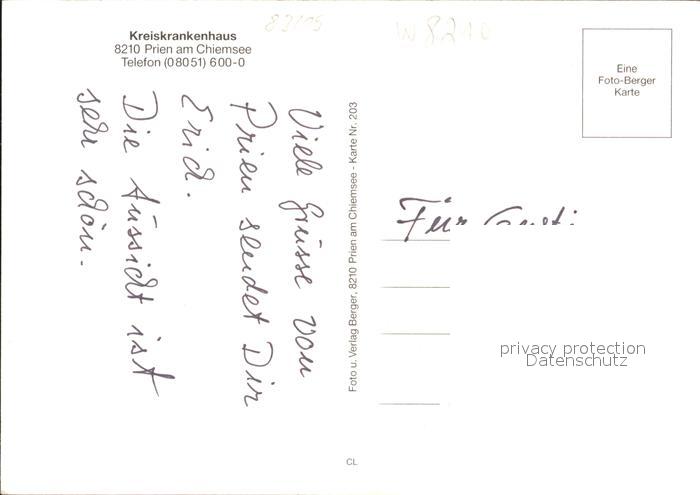 Kreiskrankenhaus
8210 Prien am Chiemsee
Telefon (08051) 600-0
Viele Grüsse von
Prien sendet Dir
Erich.
Die Aussicht ist
sehr schön.
Foto u. Verlag Berger, 8210 Prien am Chiemsee - Karte Nr. 203
W 8210
Eine
Foto-Berger
Karte
Für
privacy protection
Datenschutz
CL